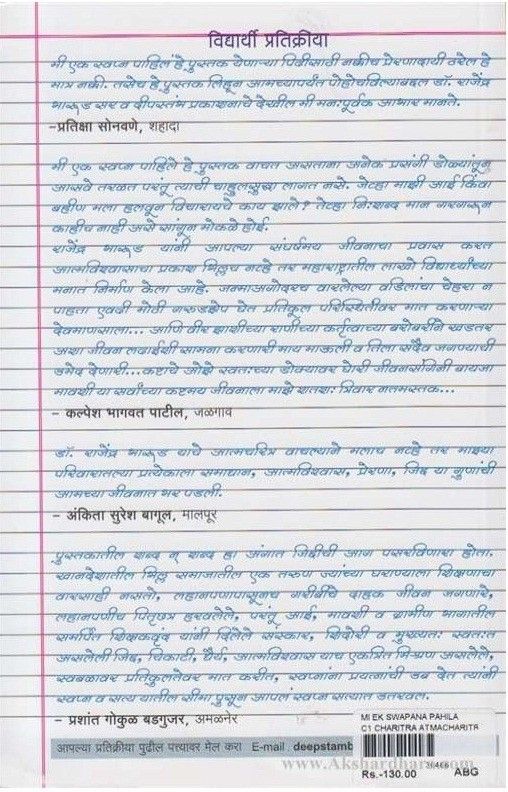 विद्यार्थी प्रतिक्रीया
मी एक स्वप्न पाहिलं हे पुस्तक येणाऱ्या पिढीसाठी नक्कीच प्रेरणादायी ठरेल हे
मात्र नक्की. तसेच हे पुस्तक लिहून आमच्यापर्यंत पोहोचविल्याबद्दल डॉ. राजेंद्र
भारूड सर व दीपस्तंभ प्रकाशनाचे देखील मी मनःपूर्वक आभार मानते.
-प्रतिक्षा सोनवणे, शहादा
मी एक स्वप्न पाहिले हे पुस्तक वाचत असताना अनेक प्रसंगी डोळ्यांतून
आसवे तरळत परंतू त्याची चाहुलसुद्धा लागत नसे. जेव्हा माझी आई किंवा
बहीण मला हलवून विचारायचे काय झाले? तेव्हा निःशब्द मान गरगरून
काहीच नाही असे सांगून मोकळे होई.
राजेंद्र भारूड यांनी आपल्या संघर्षमय जीवनाचा प्रवास करत
आत्मविश्वासाचा प्रकाश भिलुच नव्हे तर महाराष्ट्रातील लाखो विद्यार्थ्यांच्या
मनात निर्माण केला आहे. जन्माअगोदरच वारलेल्या वडिलांचा चेहरा न
पाहता एवढी मोठी गरुडझेप घेत प्रतिकूल परिस्थितीवर मात करणाऱ्या
देवमाणसाला... आणि वीर झाशीच्या राणीच्या कर्तृत्वाच्या बरोबरीने खडतर
अशा जीवन लढाईशी सामना करणारी माय माऊली व तिला सदैव जगण्याची
उमेद देणारी...कष्टाचे ओझे स्वतःच्या डोक्यावर घेणारी जीवनसंगिनी बायजा
मावशी या सर्वांच्या कष्टमय जीवनाला माझे शतशः त्रिवार नतमस्तक...
- कल्पेश भागवत पाटील, जळगाव
डॉ. राजेंद्र भारूड यांचे आत्मचरित्र वाचल्याने मलाच नव्हे तर माझ्या
परिवारातल्या प्रत्येकाला समाधान, आत्मविश्वास, प्रेरणा, जिद्द या गुणांची
आमच्या जीवनात भर पडली.
- अंकिता सुरेश बागूल, मालपूर
पुस्तकातील शब्द न् शब्द हा अंगात जिद्दीची आग पसरविणारा होता.
खानदेशातील भिलु समाजातील एक तरुण ज्यांच्या घराण्याला शिक्षणाचा
वारसाही नसतो, लहानपणापासूनच गरीबीचे दाहक जीवन जगणारे,
लहानपणीच पितृछत्र हरवलेले, परंतू आई, मावशी व ग्रामीण भागातील
समर्पित शिक्षकवृंद यांनी दिलेले संस्कार, शिदोरी व मुख्यतः स्वतःत
असलेली जिद्द, चिकाटी, धैर्य, आत्मविश्वास याच एकत्रित मिश्रण असलेले,
स्वबळावर प्रतिकुलतेवर मात करीत, स्वप्नांना प्रयत्नांची उब देत त्यांनी
स्वप्न व सत्य यातील सीमा पुसून आपलं स्वप्न सत्यात उतरवलं.
- प्रशांत गोकुळ बडगुजर, अमळनेर
आपल्या प्रतिक्रीया पुढील पत्त्यावर मेल करा E-mail deepstamb
MI EK SWAPANA PAHILA
C1 CHARITRA ATMACHARITR
www.Akshardhara.com
Rs.-130.00 ABG